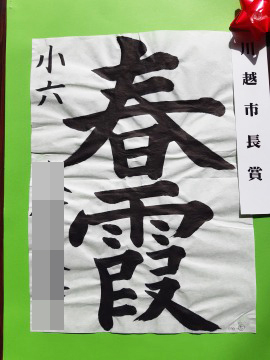 川越市長賞
春霞
小六